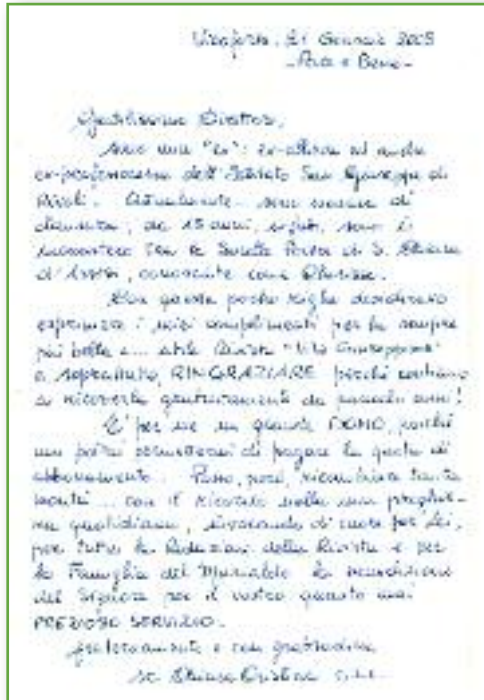 Vicoforte, 21 Gennaio 2009
- Pace e Bene -
Gentilissimo Direttore,
sono una "ex": ex-allieva ed anche
ex-professoressa dell'Istituto San Giuseppe di
Rivoli. Attualmente sono monaca di
clausura; da 15 anni, infatti, sono in
monastero tra le Sorelle Povere di S. Chiara
d'Assisi, conosciute come Clarisse.
Con queste poche righe desideravo
esprimere i miei complimenti per la sempre
più bella e... utile Rivista "Vita Giuseppina"
e, soprattutto, RINGRAZIARE perché continuo
a riceverla gratuitamente da parecchi anni!
E' per me un grande DONO, poiché
non potrei permettermi di pagare la quota di
abbonamento. Posso, però, ricambiare tanta
bontà... con il ricordo nella mia preghie-
ra quotidiana, invocando di cuore per Lei,
per tutta la Redazione della Rivista e per
la Famiglia del Murialdo la benedizione
del Signore per il vostro quanto mai
PREZIOSO SERVIZIO.
Fraternamente e con gratitudine
sr. Chiara Cristina